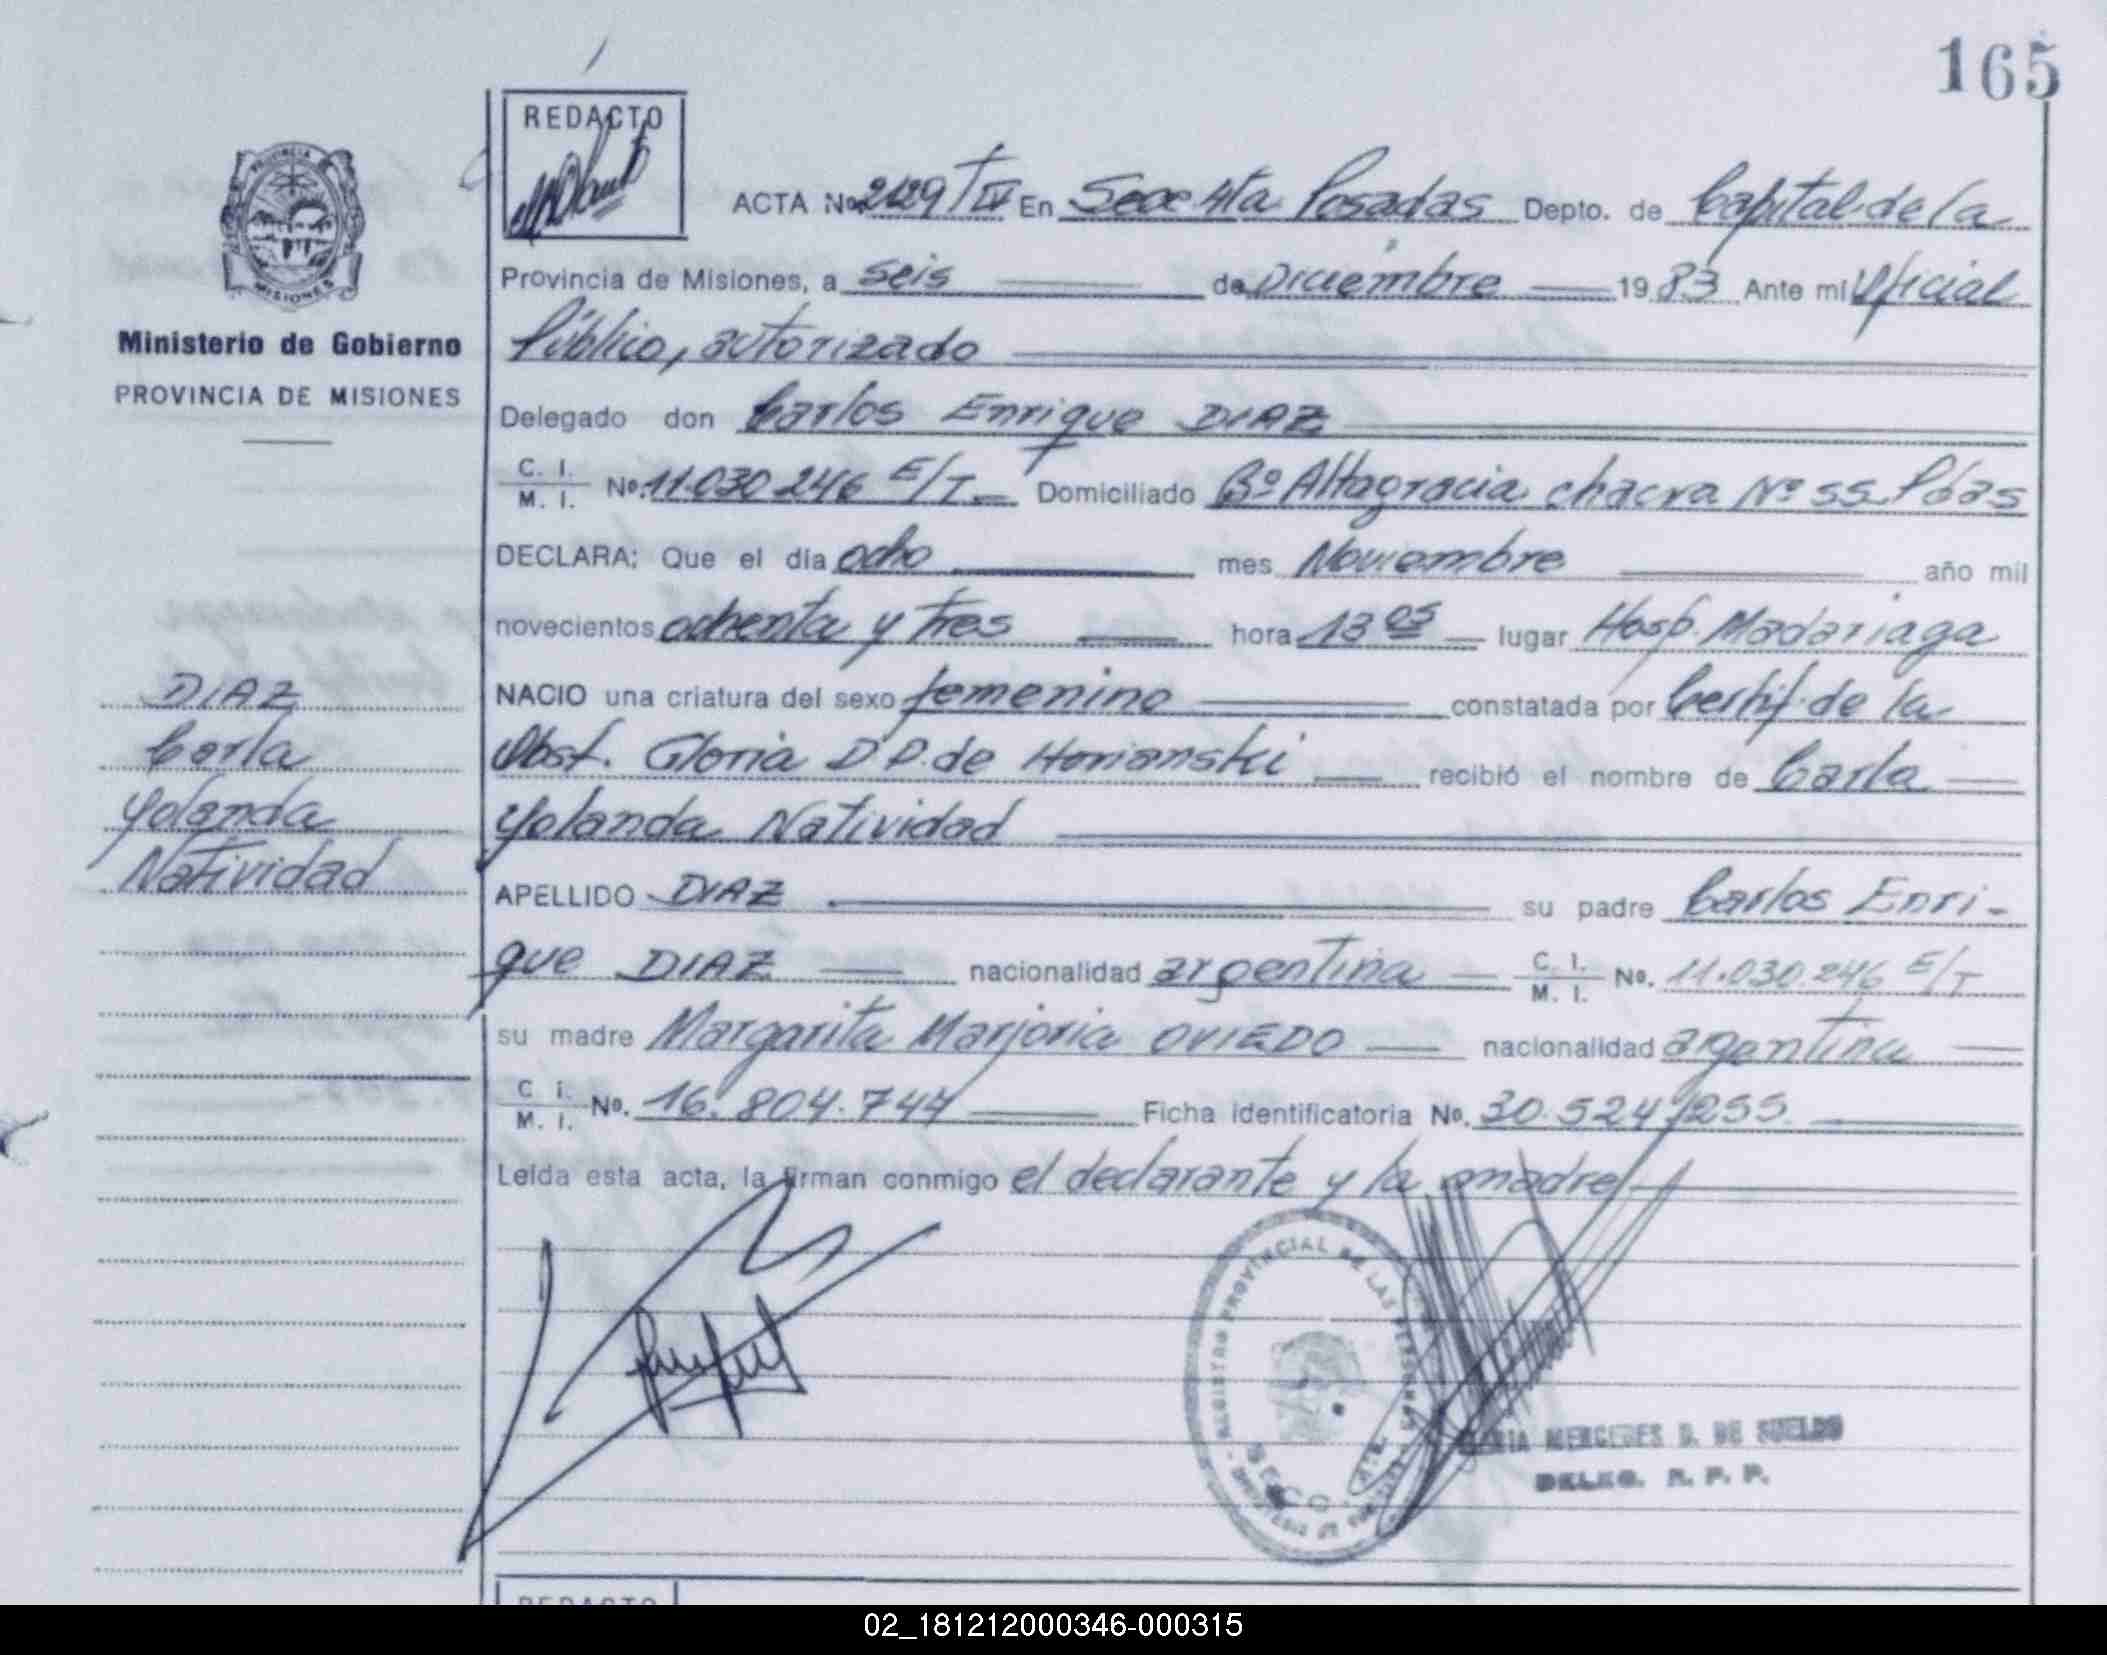 165
REDACTO
PROVINCIA DE
MISIONES
Ministerio de Gobierno
PROVINCIA DE MISIONES
ACTA Nº 2129 T IV En Secc 4ta Posadas Depto. de Capital de la
Provincia de Misiones, a seis de Diciembre 1983 Ante mi Oficial
Público, autorizado
Delegado don Carlos Enrique DIAZ
C. I. / M. I. Nº. 11.030.246 E/T Domiciliado Bº Altagracia chacra Nº 55 Pdas
DECLARA: Que el día ocho mes Noviembre año mil
novecientos ochenta y tres hora 13 05 lugar Hosp. Madariaga
NACIO una criatura del sexo femenino constatada por Certif. de la
Obst. Gloria D P. de Horianski recibió el nombre de Carla
Yolanda Natividad
APELLIDO DIAZ su padre Carlos Enri-
que DIAZ nacionalidad argentina C. I. / M. I. Nº. 11.030.246 E/T
su madre Margarita Marjoria OVIEDO nacionalidad argentina
C. I. / M. I. Nº. 16.804.744 Ficha identificatoria Nº. 30.524.255
Leída esta acta, la firman conmigo el declarante y la madre
DIAZ
Carla
Yolanda
Natividad
REGISTRO PROVINCIAL DE LAS PERSONAS
MERCEDES D. DE SUELDO
DELEG. R. P. P.
REDACTO
02_181212000346-000315